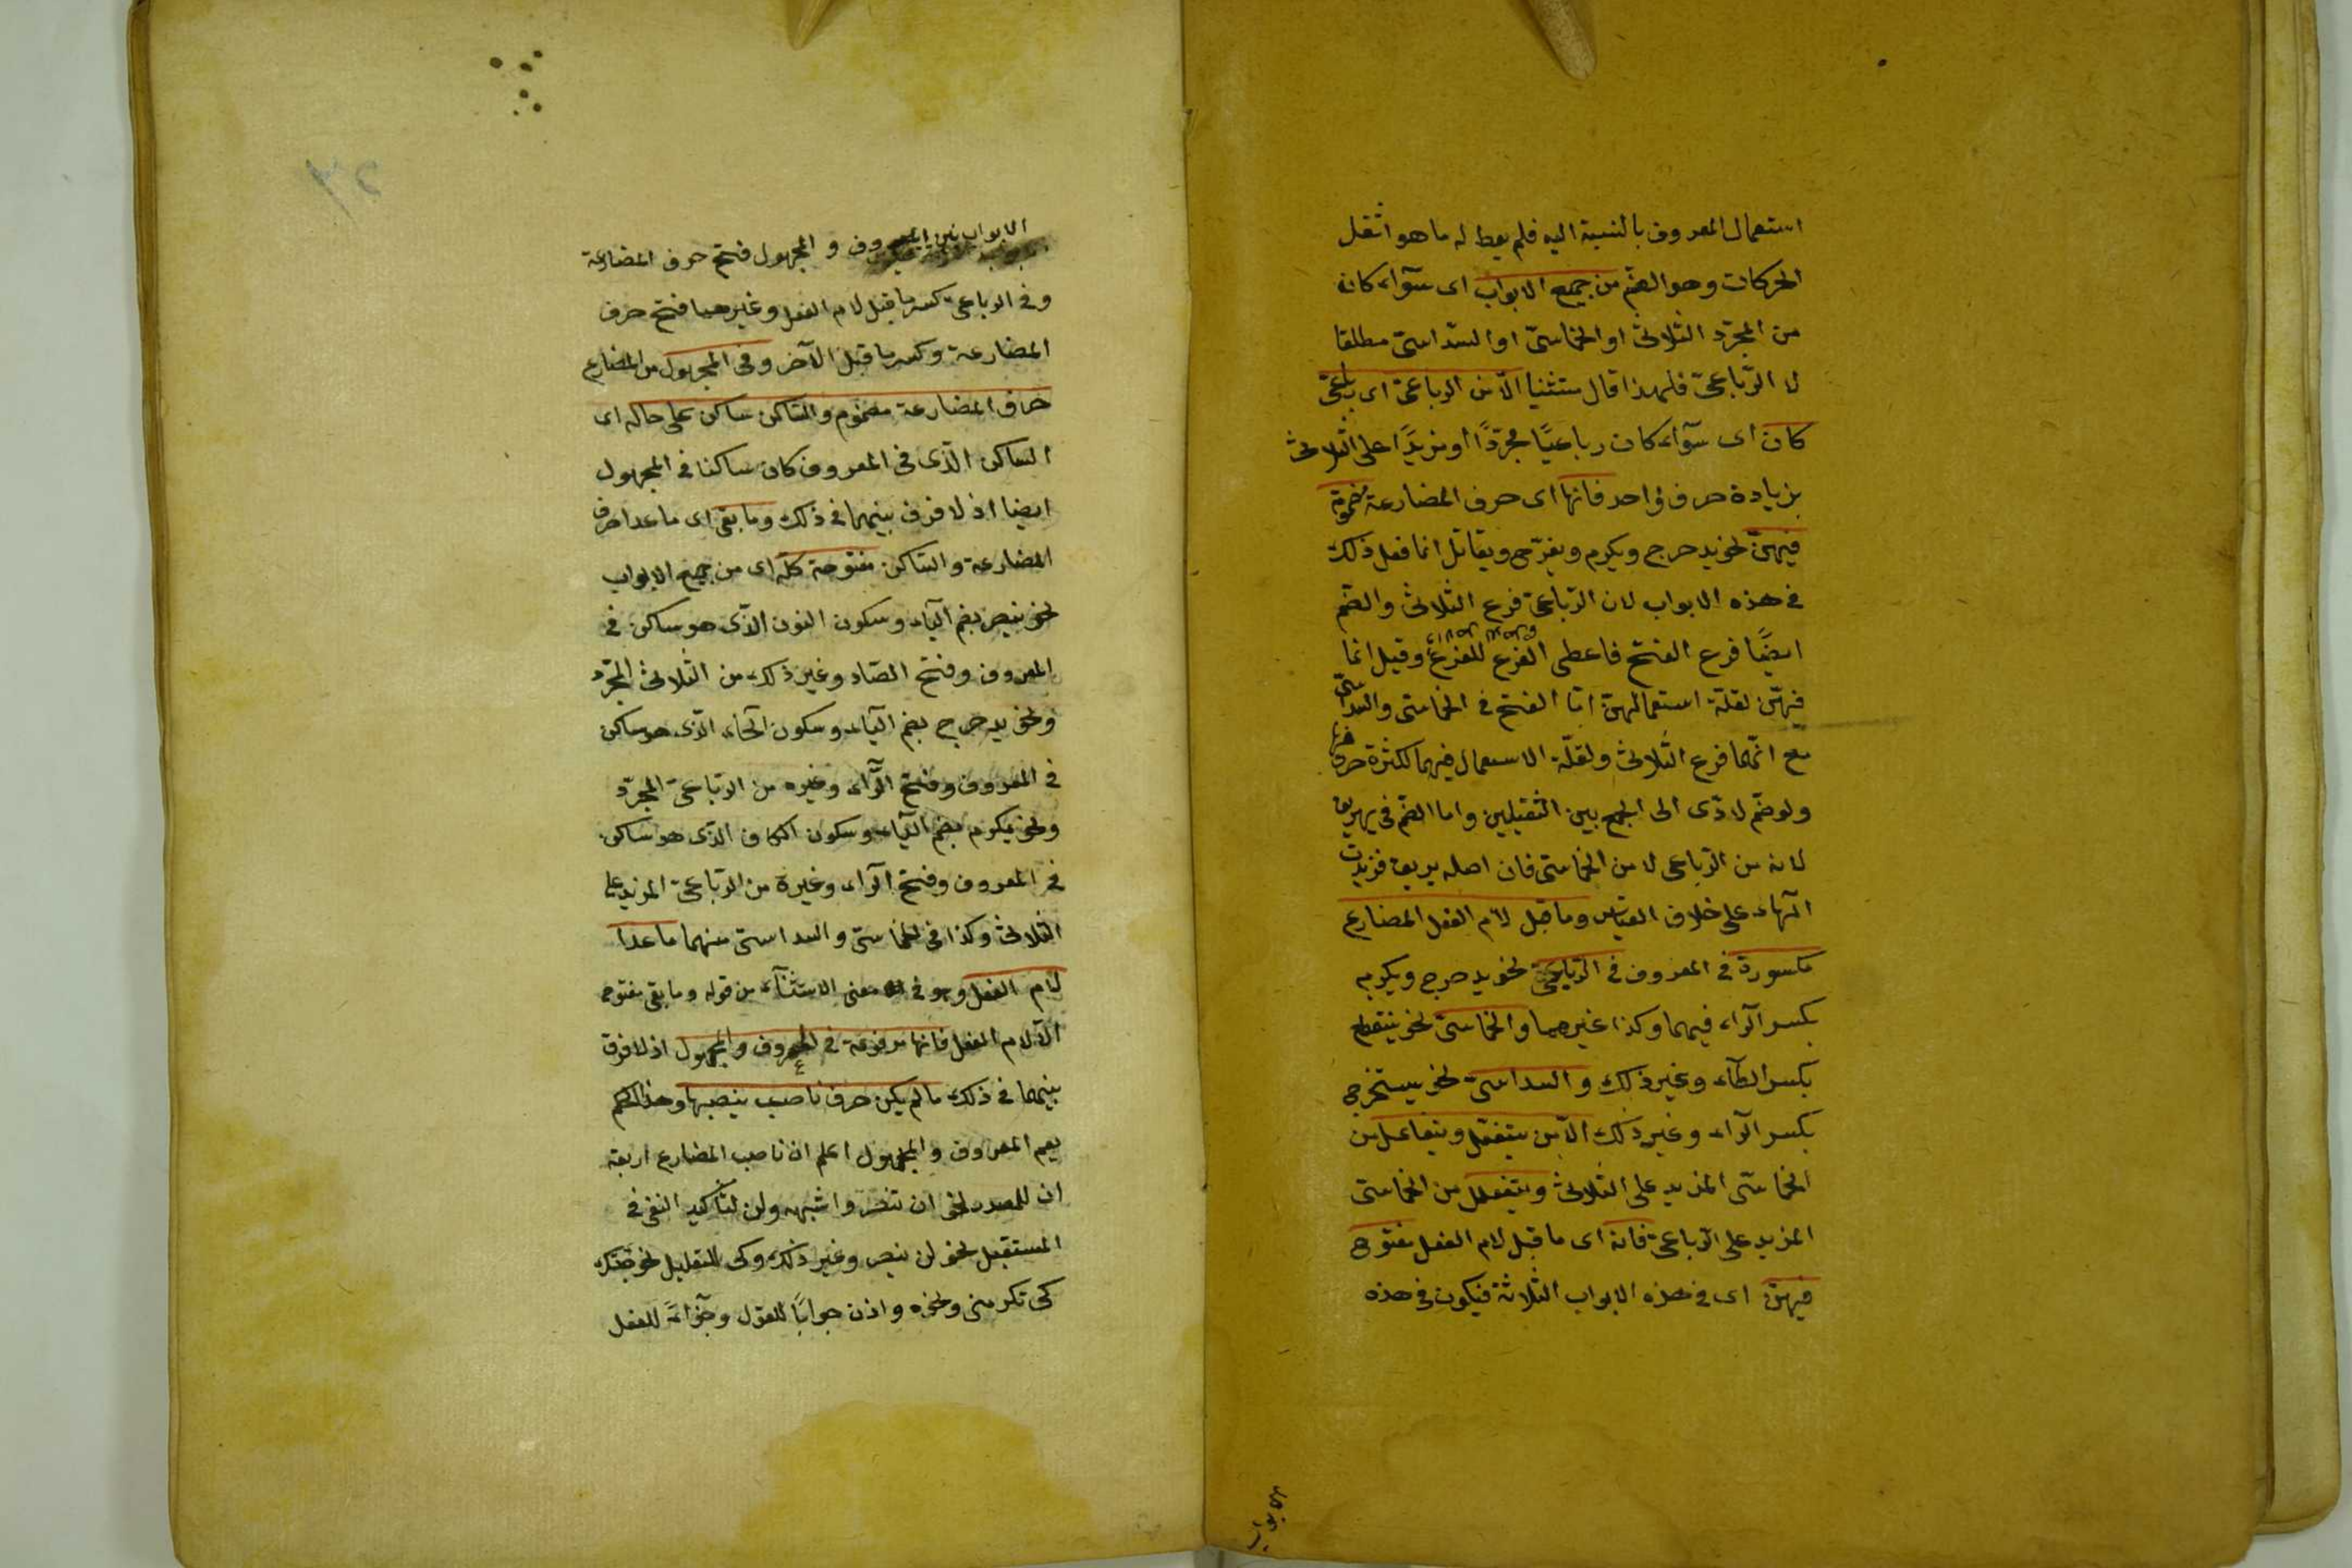 استعمال المعروف بالنسبة اليه فلم يعط له ما هو اثقل
الحركات وهو الضم من جميع الابواب اى سوآء كانه
من المجرّد الثلاثى او الخماسىّ او السّداسىّ مطلقا
لا الرّباعىّ فلهذا قال مستثنيا الاّ من الرباعىّ اى رباعىّ
كان اى سوآء كان رباعيّا مجرّدًا او مزيدًا على الثلاثى
بزيادة حرف واحد فانها اى حرف المضارعة مضمومة
فيهنّ نحو يدحرج ويكرم ويفرّح ويقاتل انما فعل ذلك
فى هذه الابواب لان الرّباعىّ فرع الثلاثى والضم
ايضًا فرع الفتح فاعطى الفرع للفرع وقيل انما
فيهنّ لقلة استعمالهنّ امّا الفتح فى الخماسى والسداسىّ
مع انّهما فرع الثلاثى ولقلّة الاستعمال فيهما لكثرة حروفهما
ولو ضمّ لادّى الى الجمع بين الثقيلين واما الضمّ فى يهريق
لانه من الرّباعى لا من الخماسى فان اصله يريق فزيدت
الهاء على خلاف القياس وما قبل لام الفعل المضارع
مكسورة فى المعروف فى الرّباعىّ نحو يدحرج ويكرم
بكسر الرّاء فيهما وكذا غيرهما والخماسىّ نحو ينقطع
بكسر الطّآء وغير ذلك والسداسىّ نحو يستخرج
بكسر الرّآء وغير ذلك الاّ من يتفعّل ويتفاعل من
الخماسّى المزيد على الثلاثى ويتفعلل من الخماسى
المزيد على الرّباعىّ فانه اى ما قبل لام الفعل مفتوح
فيهنّ اى فى هذه الابواب الثلاثة فيكون فى هذه
الابواب
الابواب بين المعروف و المجهول فتح حرف المضارعة
وفى الرباعى كسر ما قبل لام الفعل وغيرهما فتح حرف
المضارعة وكسر ما قبل الآخر وفى المجهول من المضارع
حرف المضارعة مضموم والسّاكن ساكن على حاله اى
الساكن الذى فى المعروف كان ساكنا فى المجهول
ايضا اذ لا فرق بينهما فى ذلك وما بقى اى ما عدا حرف
المضارعة والسّاكن مفتوحة كلّه اى من جميع الابواب
نحو ينصر بضم اليآء وسكون النون الذى هو ساكن فى
المعروف وفتح الصّاد وغير ذلك من الثلاثى المجرّد
ونحو يدحرج بضم اليآء وسكون الحآء الذى هو ساكن
فى المعروف وفتح الرّآء وغيره من الرّباعىّ المجرّد
ونحو يكرم بضم اليآء وسكون الكاف الذى هو ساكن
فى المعروف وفتح الرآء وغيره من الرّباعىّ المزيد على
الثلاثى وكذا فى الخماسىّ والسداسىّ منهما ما عدا
لام الفعل وهو فى معنى الاستثنآء من قوله وما بقى مفتوح
الاّ لام الفعل فانها مرفوعة فى المعروف والمجهول اذ لا فرق
بينهما فى ذلك ما لم يكن حرف ناصب ينصبها وهذا الحكم
يعم المعروف والمجهول اعلم ان ناصب المضارع اربعة
ان للمصدر نحو ان تنصر واشبهه ولن لتأكيد النفى فى
المستقبل نحو لن ينصر وغير ذلك وكى للتعليل نحو جئتك
كى تكرمنى ونحوه واذن جوابًا للقول وجزآءً للفعل